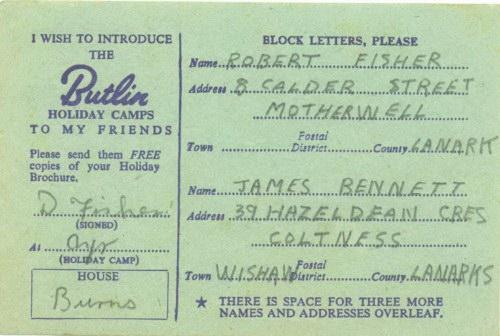 I WISH TO INTRODUCE
THE
Butlin
HOLIDAY CAMPS
TO MY FRIENDS
Please send them FREE
copies of your Holiday
Brochure.
D Fisher
(SIGNED)
At Ayr
(HOLIDAY CAMP)
HOUSE
Burns
BLOCK LETTERS, PLEASE
Name ROBERT FISHER
Address 8 CALDER STREET
MOTHERWELL
Town Postal District County LANARK
Name JAMES BENNETT
Address 39 HAZELDEAN CRES
COLTNESS
Town WISHAW Postal District County LANARKS
★ THERE IS SPACE FOR THREE MORE
NAMES AND ADDRESSES OVERLEAF.